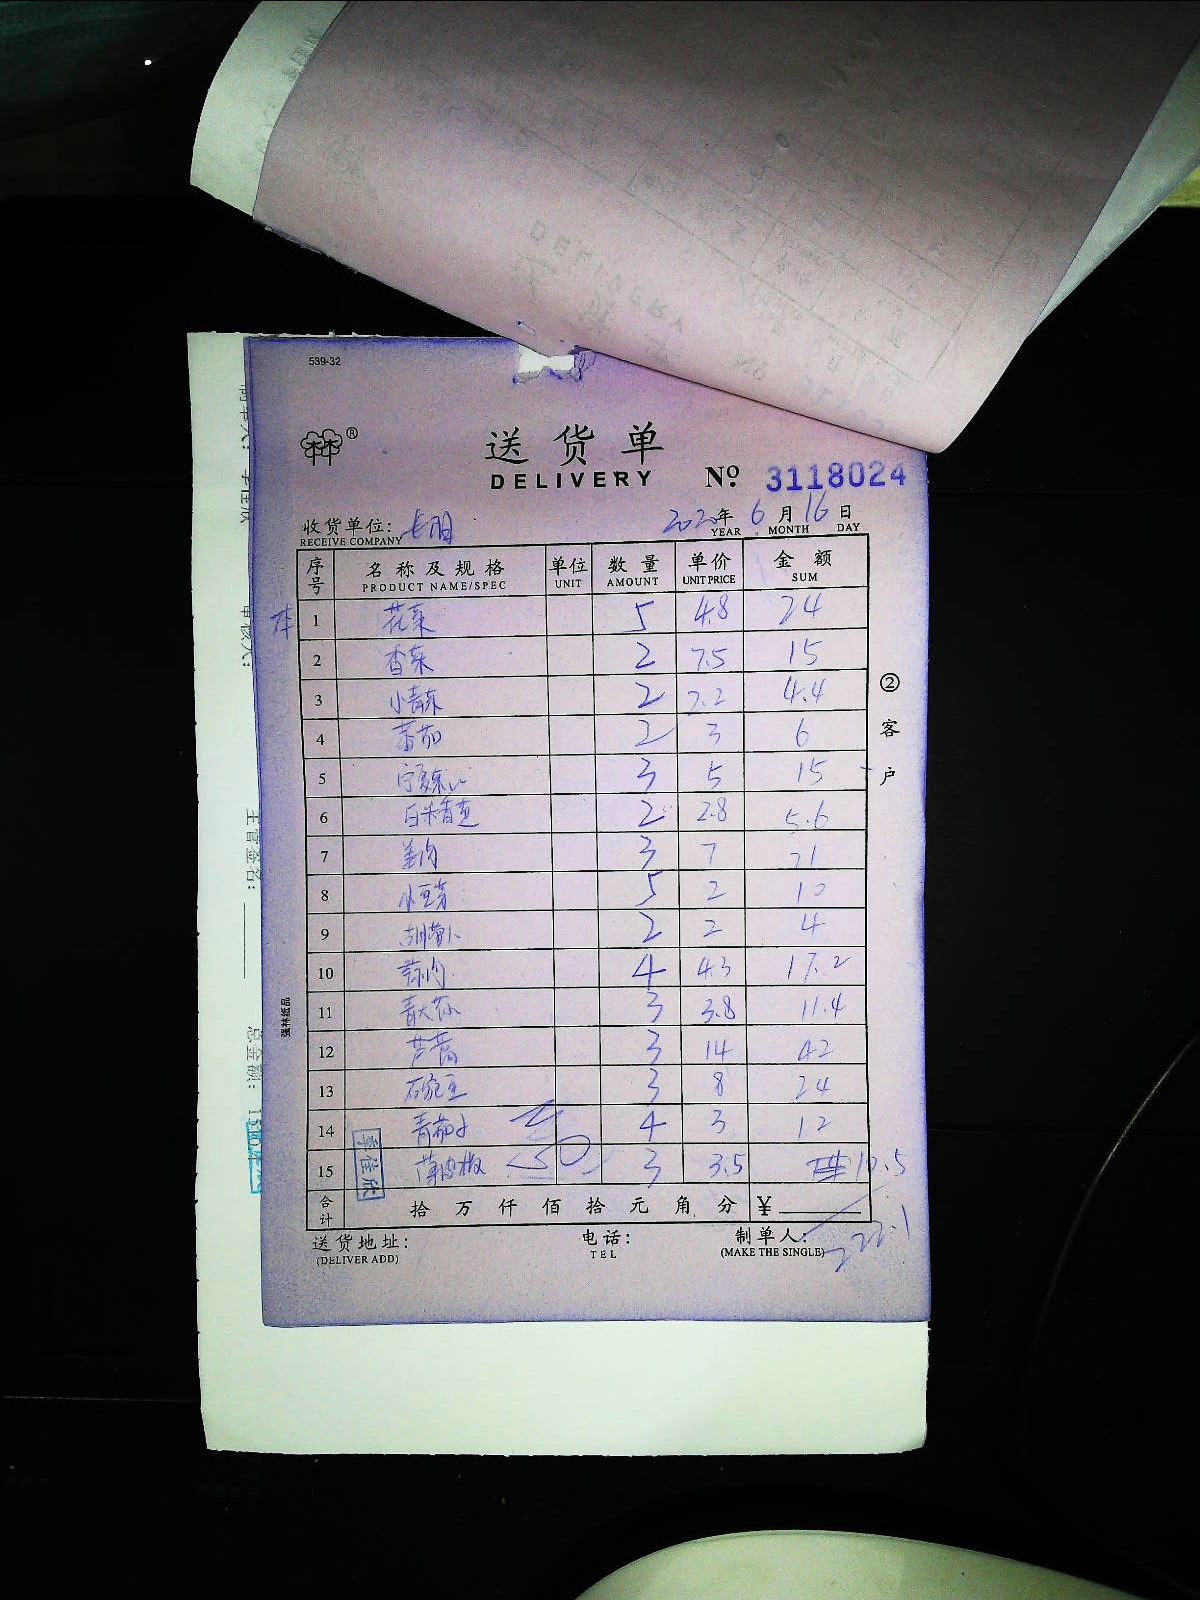 539-32
林林®
送货单
DELIVERY № 3118024
收货单位: 2020年 6月 16日
RECEIVE COMPANY YEAR MONTH DAY
序号 名称及规格 单位 数量 单价 金额
PRODUCT NAME/SPEC UNIT AMOUNT UNIT PRICE SUM
1 花菜 5 4.8 24
2 香菜 2 7.5 15
3 小青菜 2 2.2 4.4
4 番茄 2 3 6
5 宁夏菜心 3 5 15
6 白米青 2 2.8 5.6
7 姜肉 3 7 21
8 小豆芽 5 2 10
9 胡萝卜 2 2 4
10 蒜肉 4 4.3 17.2
11 青大蒜 3 3.8 11.4
12 芦蒿 3 14 42
13 豆 3 8 24
14 青茄子 4 3 12
15 薄皮椒 3 3.5 10.5
李佳欣
合计 拾 万 仟 佰 拾 元 角 分 ¥
222.1
送货地址: 电话: 制单人:
(DELIVER ADD) TEL (MAKE THE SINGLE)
②客户
强林纸品
主管签名:
总金额: